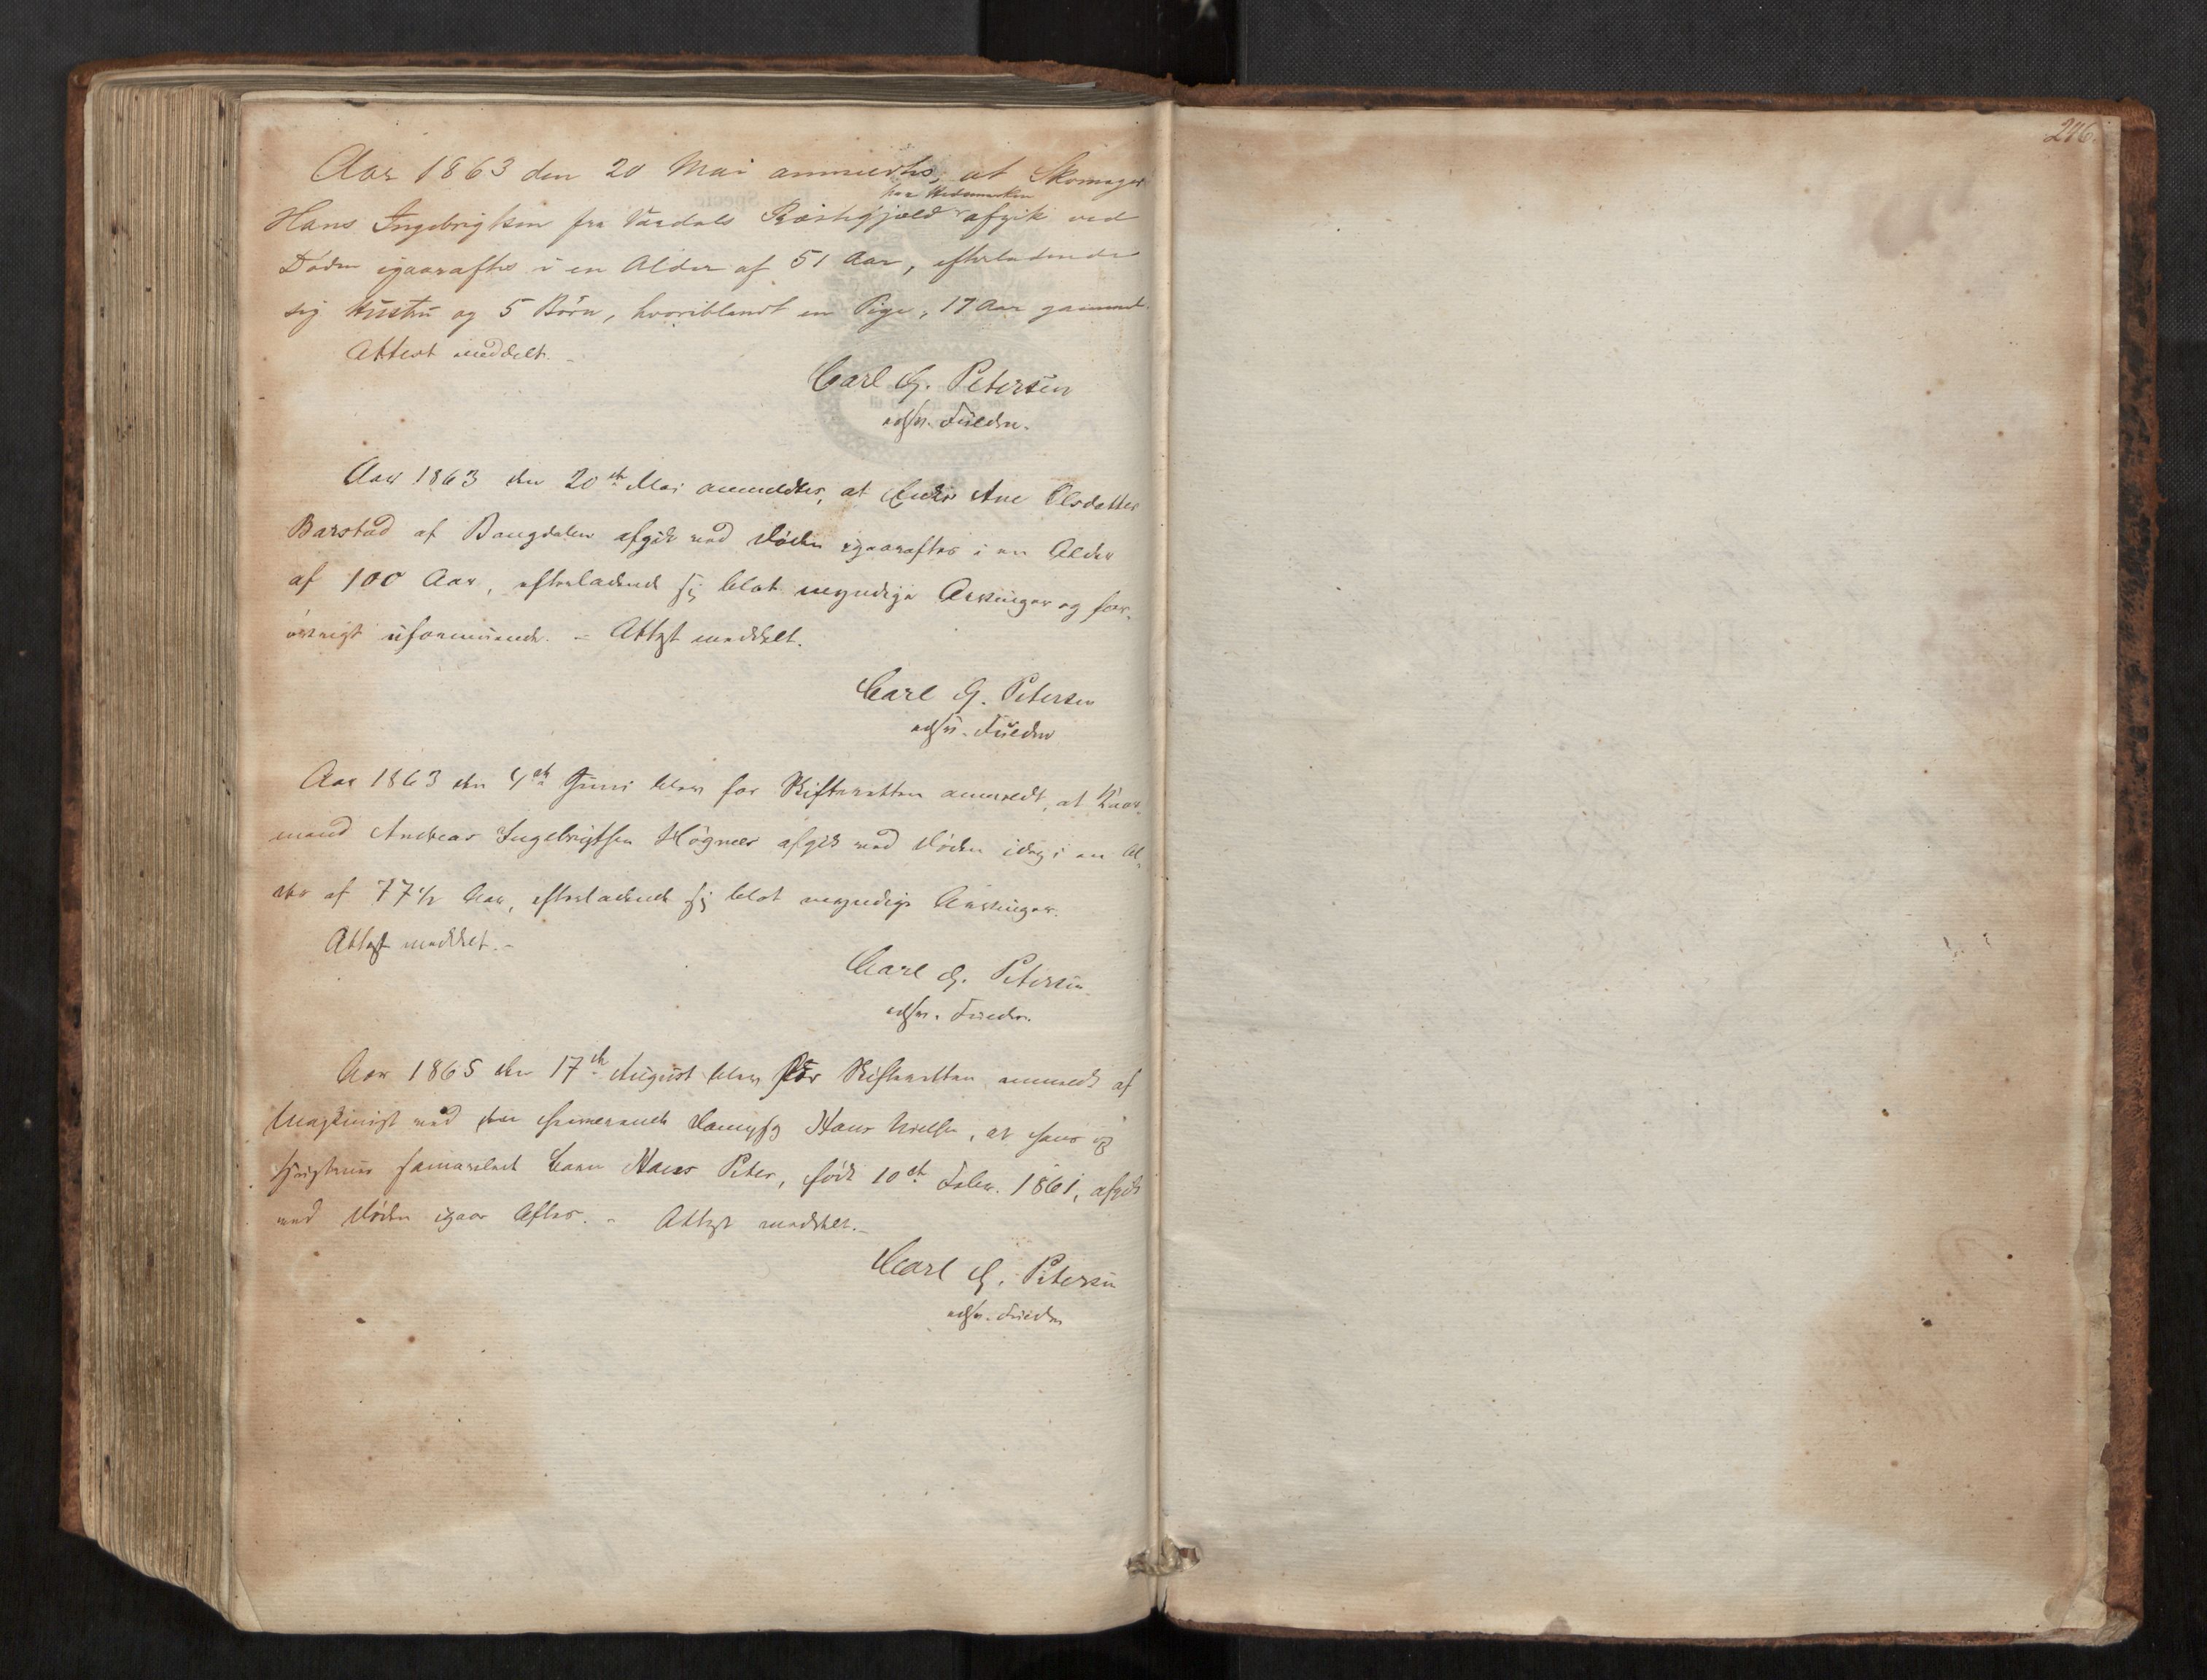 246.
Aar 1863 den 20 Mai anmeldtes, at Skomager
fra Hedemarken
Hans Ingebrigtsen fra Vardals Præstegjæld afgik ved
Døden igaaraftes i en Alder af 51 Aar, efterladende
sig Hustru og 5 Børn, hvoriblandt en Pige, 17 Aar gammel.
Attest meddelt. –
Carl G. Petersen
const. Foged.
Aar 1863 den 20de Mai anmeldtes, at Enke Ane Olsdatter
Barstad af Bangdalen afgik ved Døden igaaraftes i en Alder
af 100 Aar, efterladende sig blot myndige Arvinger og for-
øvrigt uformuende. – Attest meddelt.
Carl G. Petersen
Aar 1863 den 4de Juni blev for Skifteretten anmeldt, at Kaar-
mand Andreas Ingebrigtsen Høgnes afgik ved Døden idag i en Al-
der af 77 1/2 Aar, efterladende sig blot myndige Arvinger.
Attest meddelt. –
Carl G. Petersen
Aar 1865 den 17de August blev for Skifteretten anmeldt af
Maskinist ved den Dampsag Hans Nielsen, at hans og
Hustrues Barn Hans Peter, født 10de Febr. 1861, afgik
ved Døden igaar Aftes. – Attest meddelt. –
Carl G. Petersen